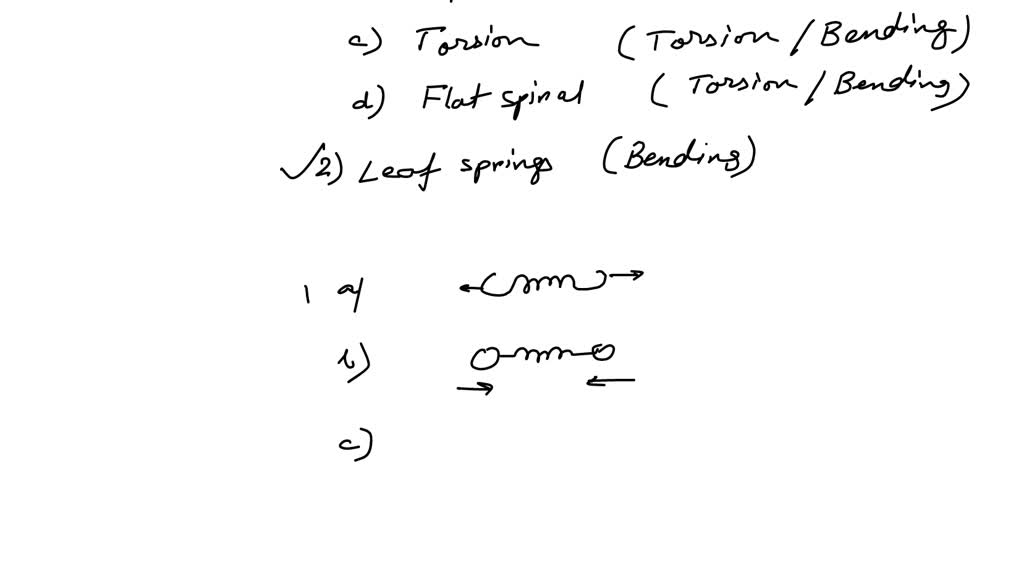 c) Torsion (Torsion / Bending)
d) Flat spinal (Torsion / Bending)
√2) Leaf springs (Bending)
1 a)
b)
c)